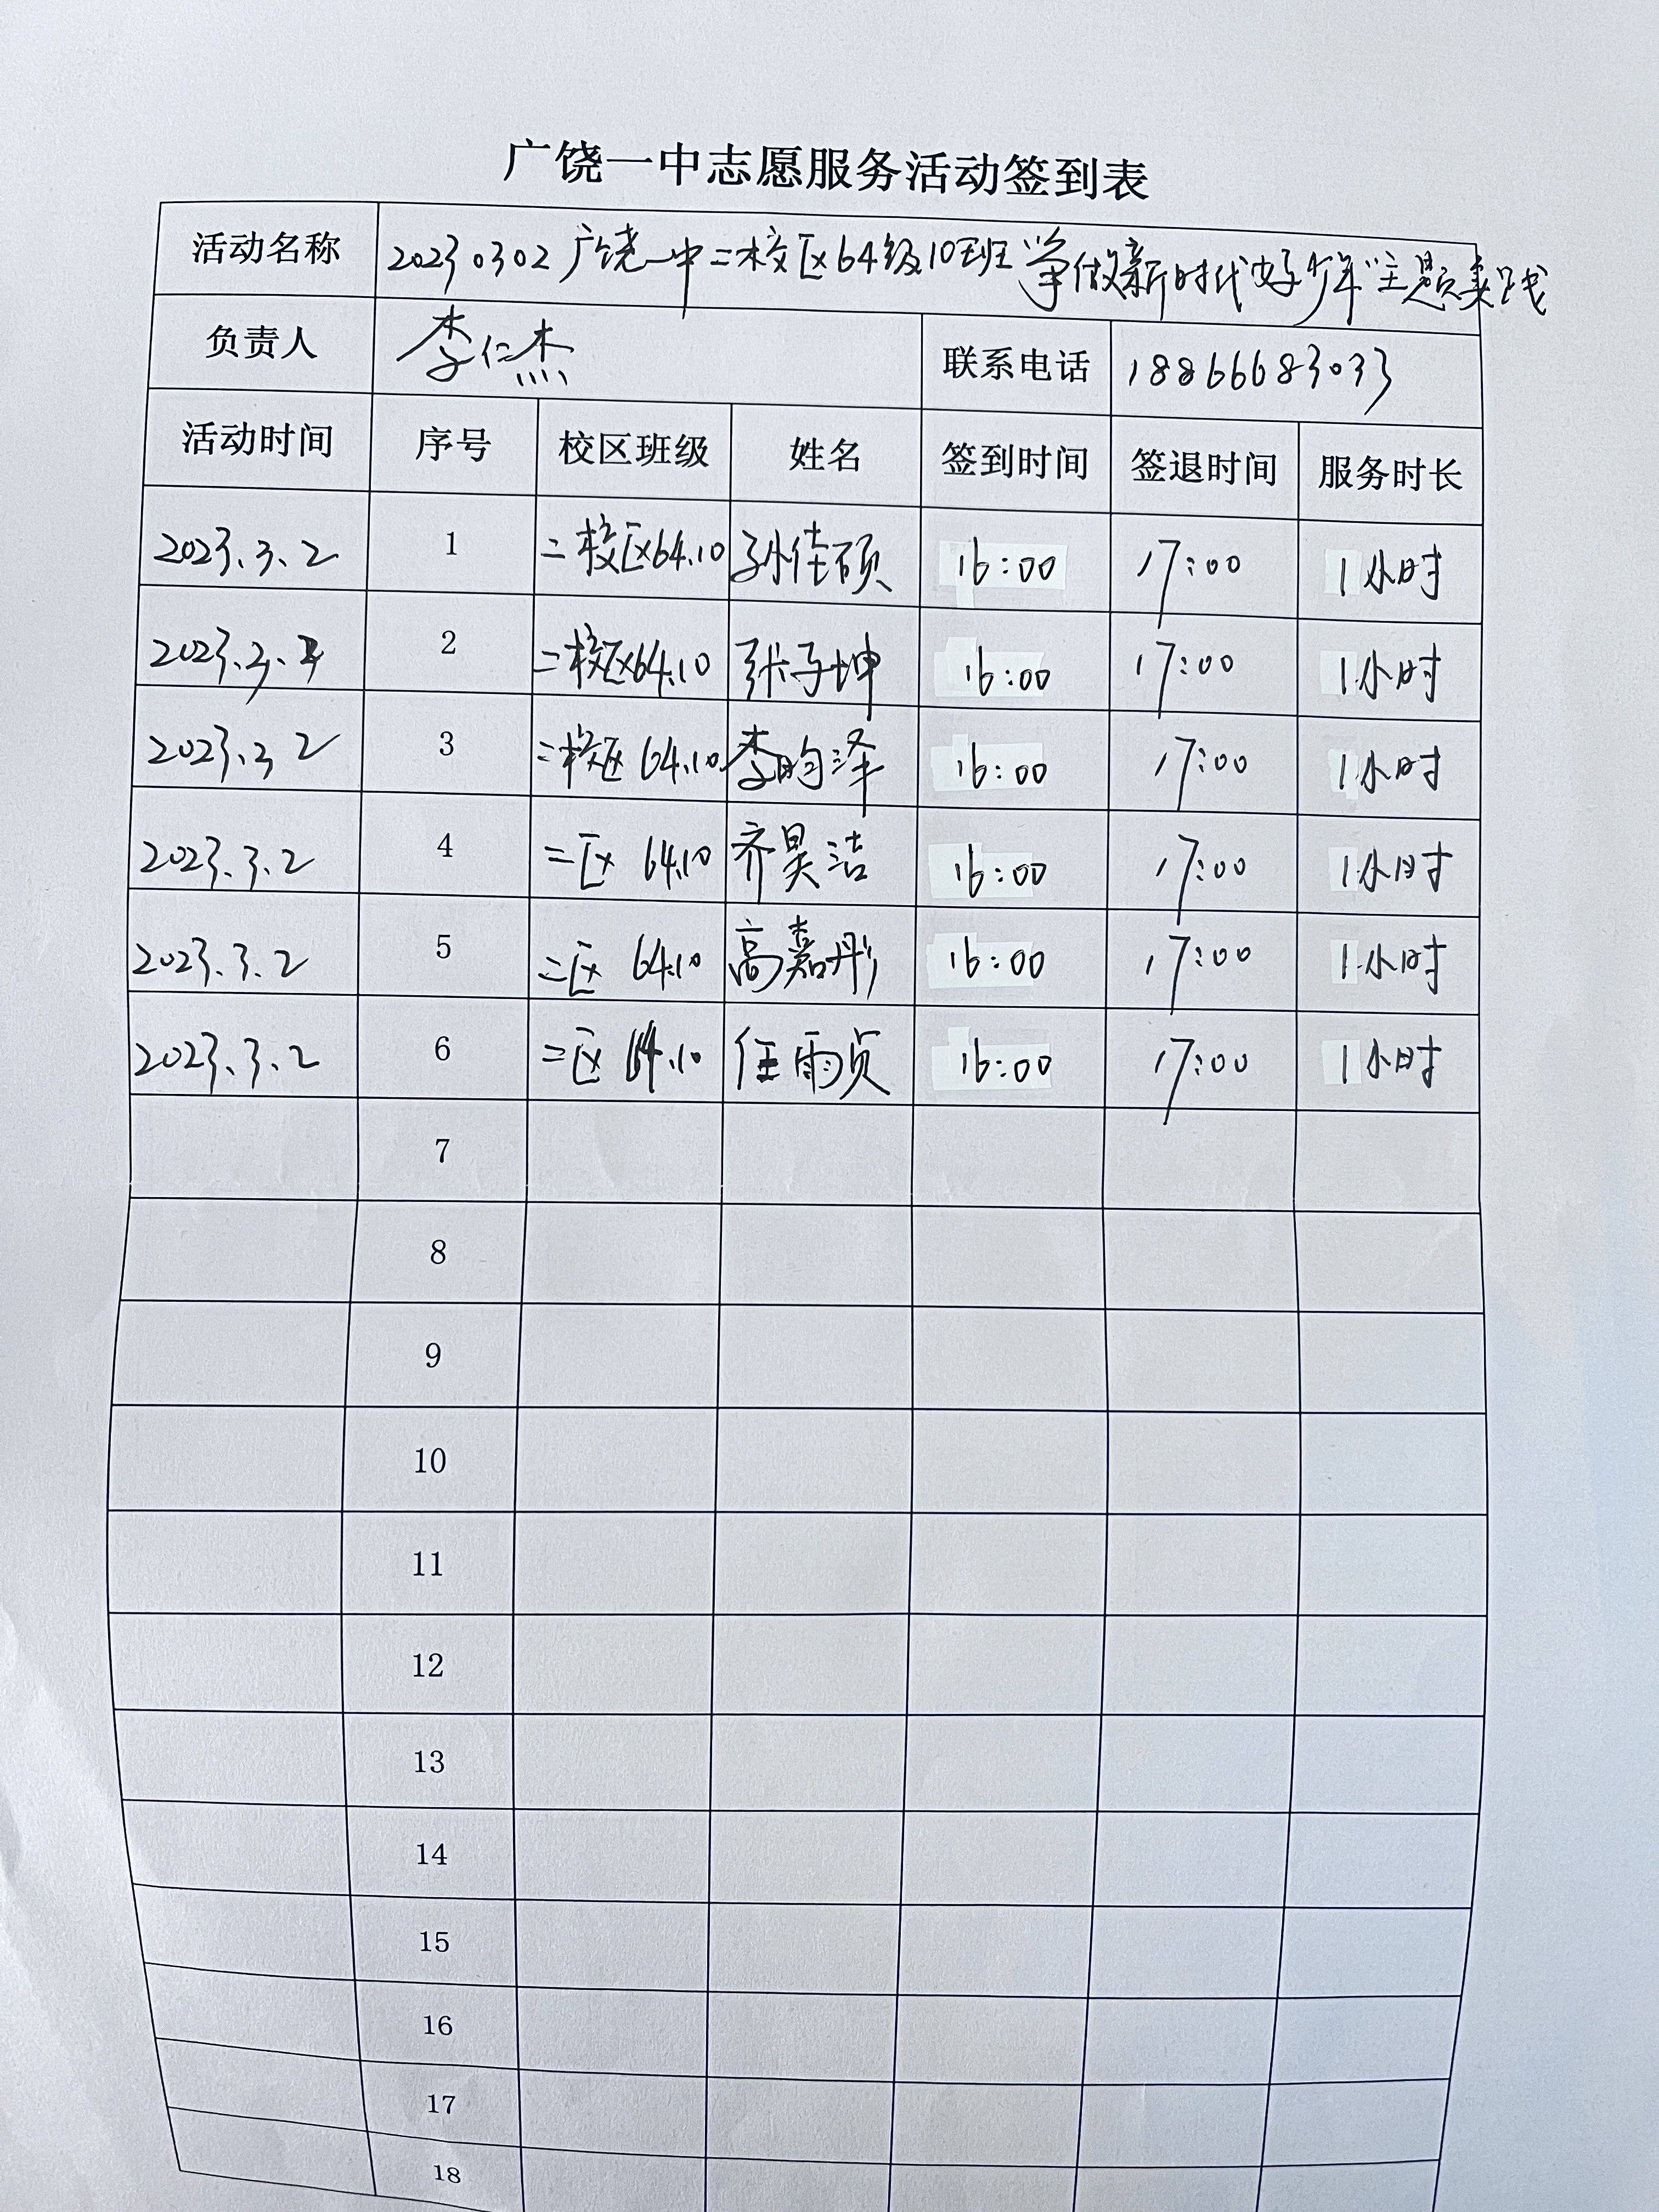 广饶一中志愿服务活动签到表
活动名称 20230302广饶一中二校区64级10班"争做新时代好少年"主题实践
负责人 李仁杰 联系电话 18866683033
活动时间 序号 校区班级 姓名 签到时间 签退时间 服务时长
2023.3.2 1 二校区64.10 孙佳硕 16:00 17:00 1小时
2023.3.2 2 二校区64.10 张子坤 16:00 17:00 1小时
2023.3.2 3 二校区64.10 李昀泽 16:00 17:00 1小时
2023.3.2 4 二区 64.10 齐昊洁 16:00 17:00 1小时
2023.3.2 5 二区 64.10 高嘉彤 16:00 17:00 1小时
2023.3.2 6 二区 64.10 任雨贞 16:00 17:00 1小时
7
8
9
10
11
12
13
14
15
16
17
18